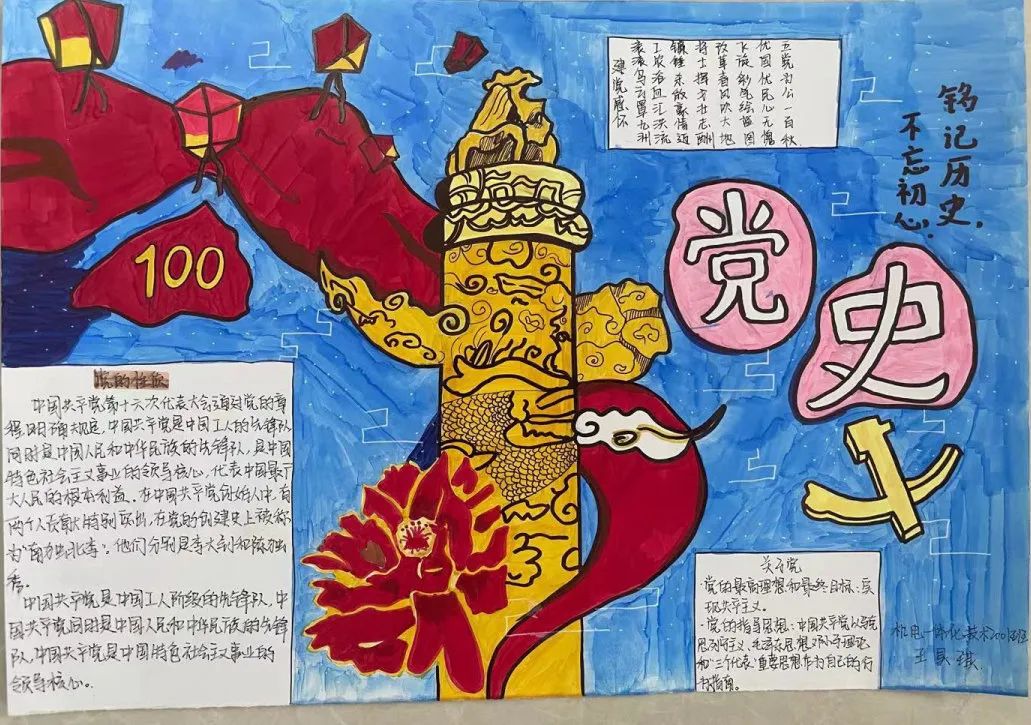 铭记历史,
不忘初心.
建党感怀
滚滚乌云罩九洲
工农浴血汇洪流
镰锤豪情迈
将士挥戈壮志酬
改革春风吹大地
飞彩笔绘蓝图
忧国忧民心无愧
立党为公一百秋
党史
100
党的性质
中国共产党第十六次代表大会通过党的章
程明确规定,中国共产党是中国工人的先锋队
同时是中国人民和中华民族的先锋队,是中国
特色社会主义事业的领导核心,代表中国最广
大人民的根本利益。在中国共产党创始人中,有
两个人贡献特别突出,在党的创建史上被称
为"南陈北李"。他们分别是李大钊和陈独
秀。
中国共产党是中国工人阶级的先锋队,中
国共产党同时是中国人民和中华民族的先锋
队,中国共产党是中国特色社会主义事业的
领导核心。
关于党
·党的最高理想和最终目标:实
现共产主义。
·党的指导思想:中国共产党以马克
思列宁主义、毛泽东思想、邓小平理论
和"三个代表"重要思想作为自己的行
动指南。
机电一体化技术2001班
王